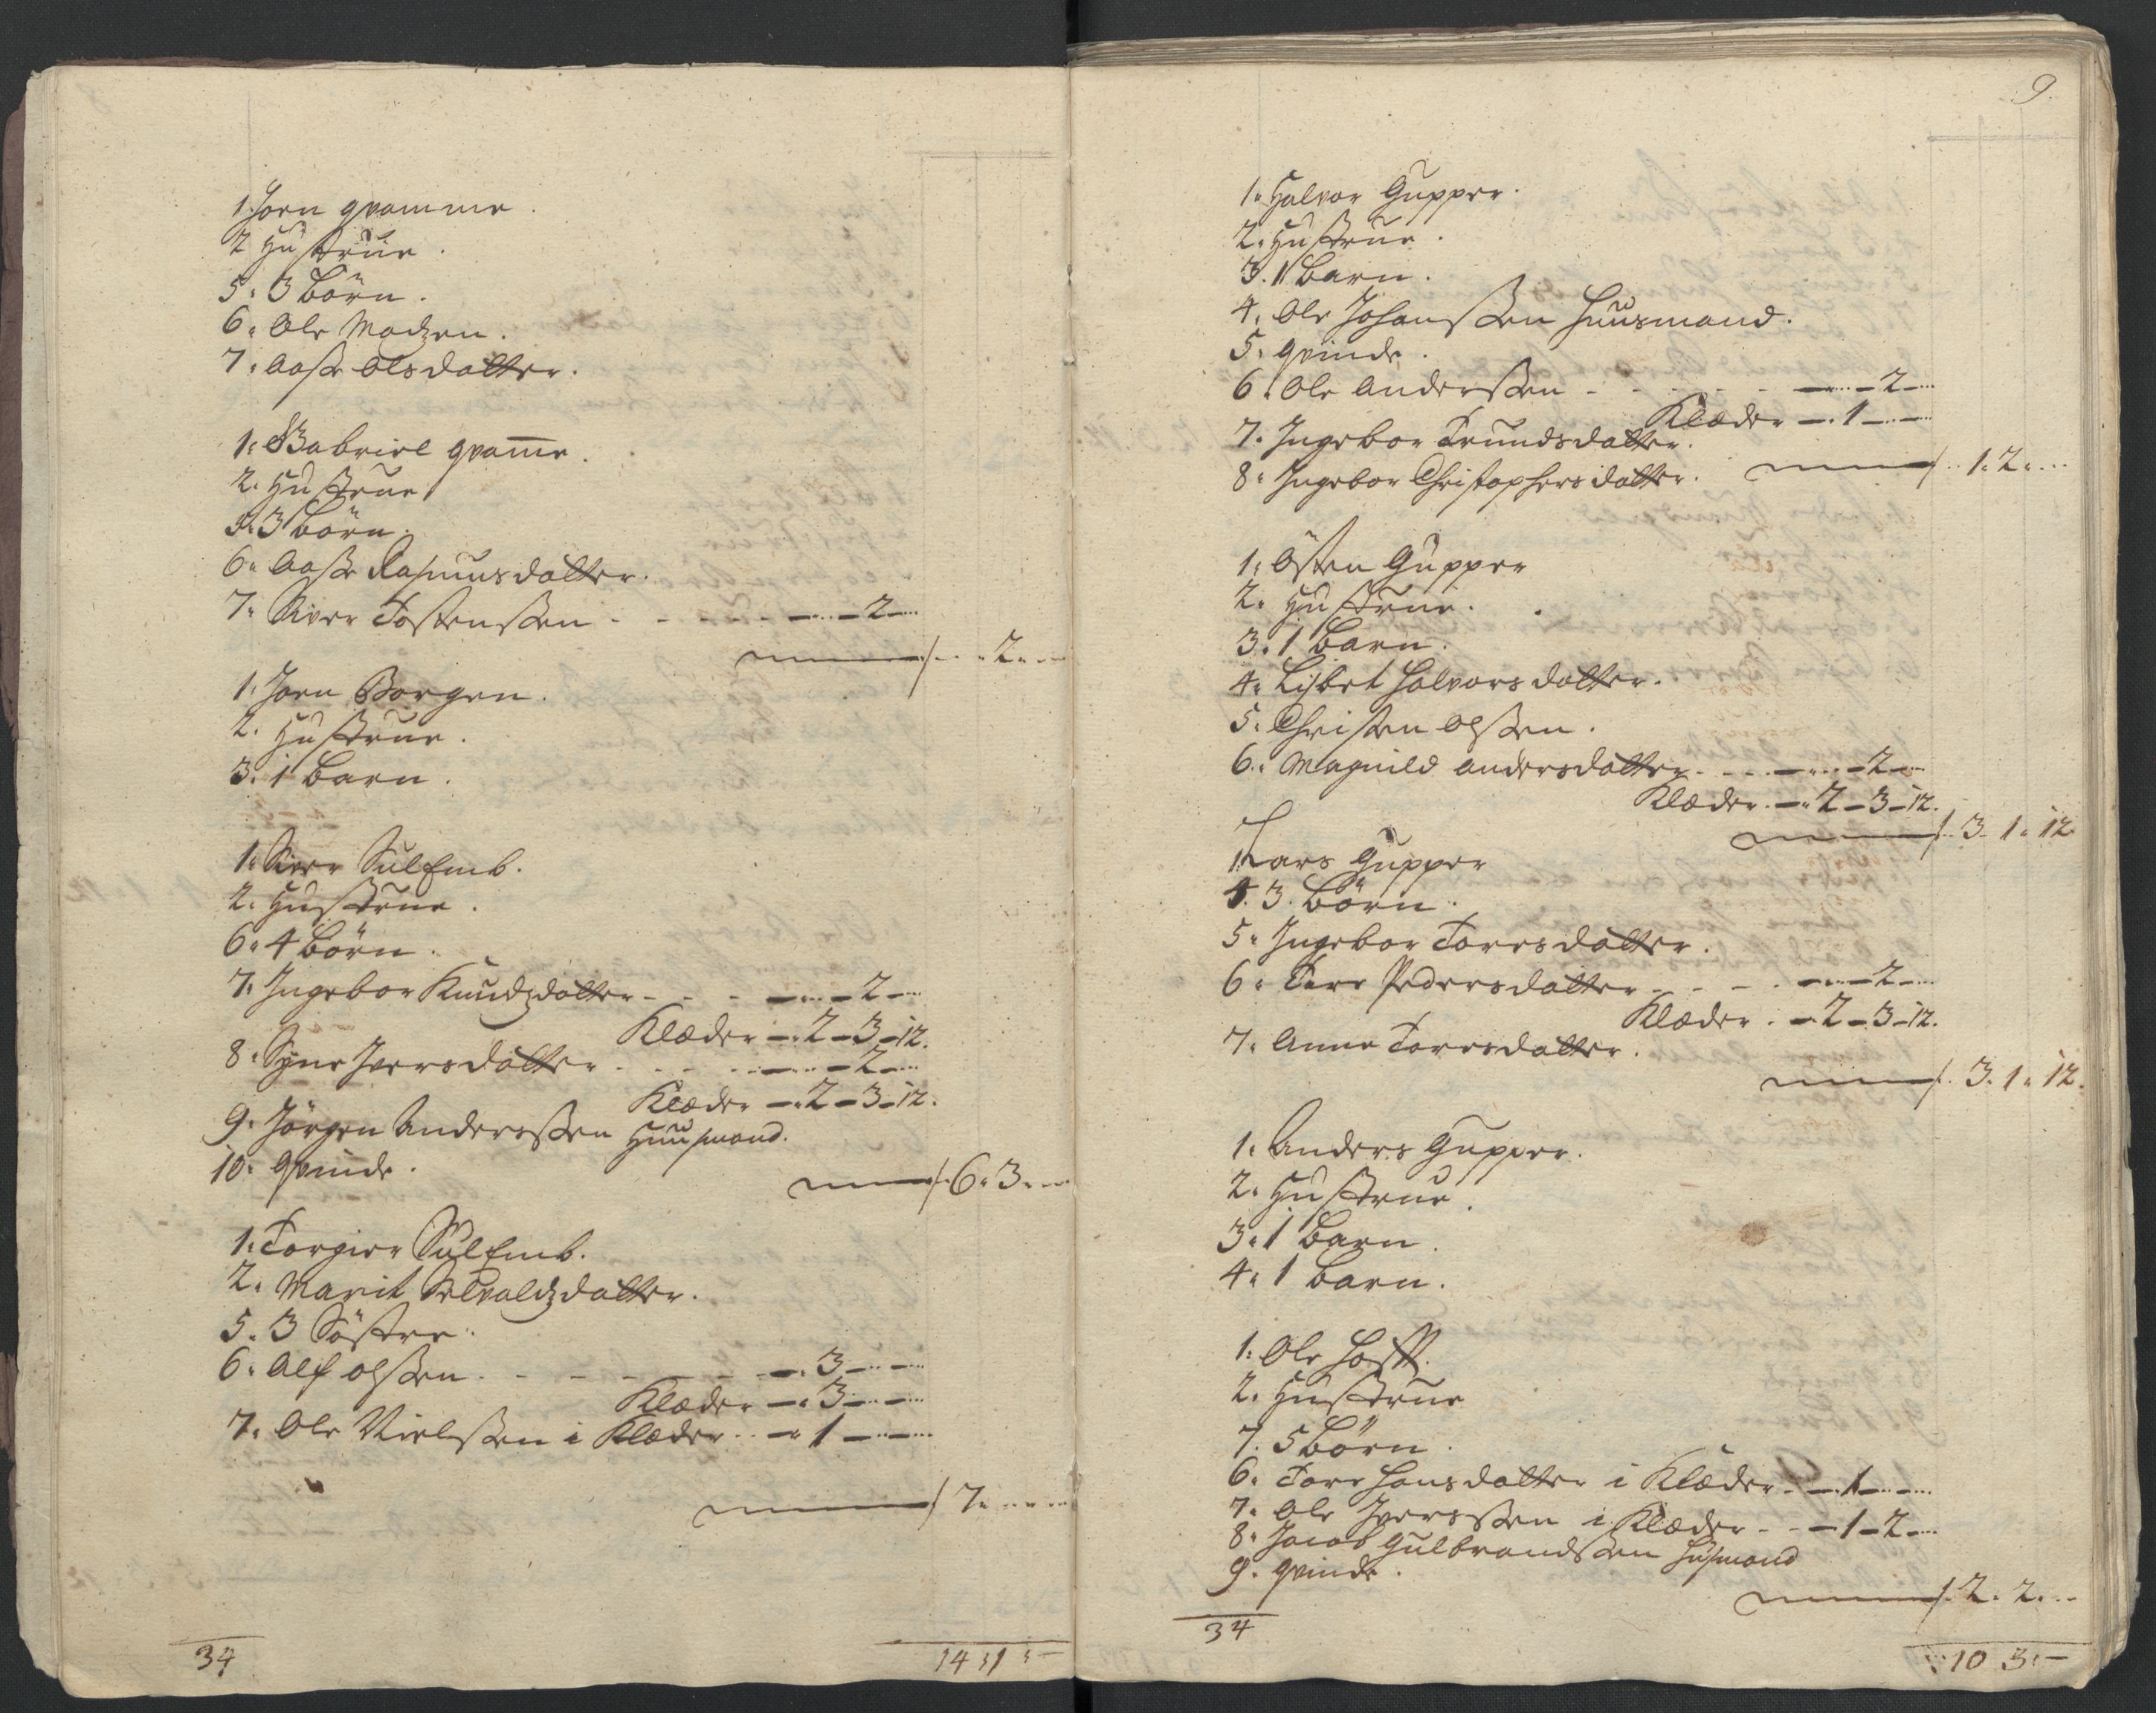 1. Joen qvamme.
2 Hustrue.
5. 3 Börn.
6. Ole Madzen.
7. Aase Olsdatter.
1. Gabriel qvame.
2. Hustrue
5. 3 börn.
6. Aase Rasmusdatter.
7. Siver Tostenssen - - - - - 2 -
- 2 -
1. Joen Borgen.
2. Hustrue.
3. 1 Barn.
1. Siver
2. Hustrue.
6. 4 Börn.
7. Ingebor Knudzdatter - - - 2 -
Klæder - 2 - 3 - 12.
8. Syne Iversdatter - - - 2 -
Klæder - 2 - 3 - 12.
9. Jörgen Anderssen Huusmand.
10. Qvinde.
6. 3. -
1. Torgier
2. Marit datter.
5. 3 Söstre.
6. Alf olssen. - - - - 3 -
Klæder - 3 -
7. Ole Nielssen i Klæder - 1 -
7. - -
34
14 1 -
9.
1. Halvor Gupper.
2. Hustrue.
3. 1 Barn.
4. Ole Johanssen Huusmand.
5. qvinde.
6. Ole Anderssen - - - - 2 -
Klæder - 1 -
7. Ingebor Trundsdatter.
8. Ingebor Christophersdatter. 1. 2. -
1. Östen Gupper
2. Hustrue.
3. 1 Barn.
4. Lisbet Halvorsdatter.
5. Christen Olssen.
6. Magnild Andersdatter - - - 2 -
Klæder. - 2 - 3 - 12.
3. 1. 12
1. Lars Gupper
4. 3. Börn.
5. Ingebor Torresdatter.
6. Pedersdatter - - - 2 -
Klæder. - 2 - 3 - 12.
7. Anne Torresdatter.
3. 1. 12.
1. Anders Gupper.
2. Hustrue.
3. 1 Barn.
4. 1 Barn.
1. Ole
2. Hustrue
7. 5 Börn.
6. Torre Hansdatter i Klæder - 1 -
7. Ole Iverssen i Klæder - - 1 - 2 -
8. Jacob Gulbrandssen Husmand
9. qvinde.
2. 2. -
34
10 3 -